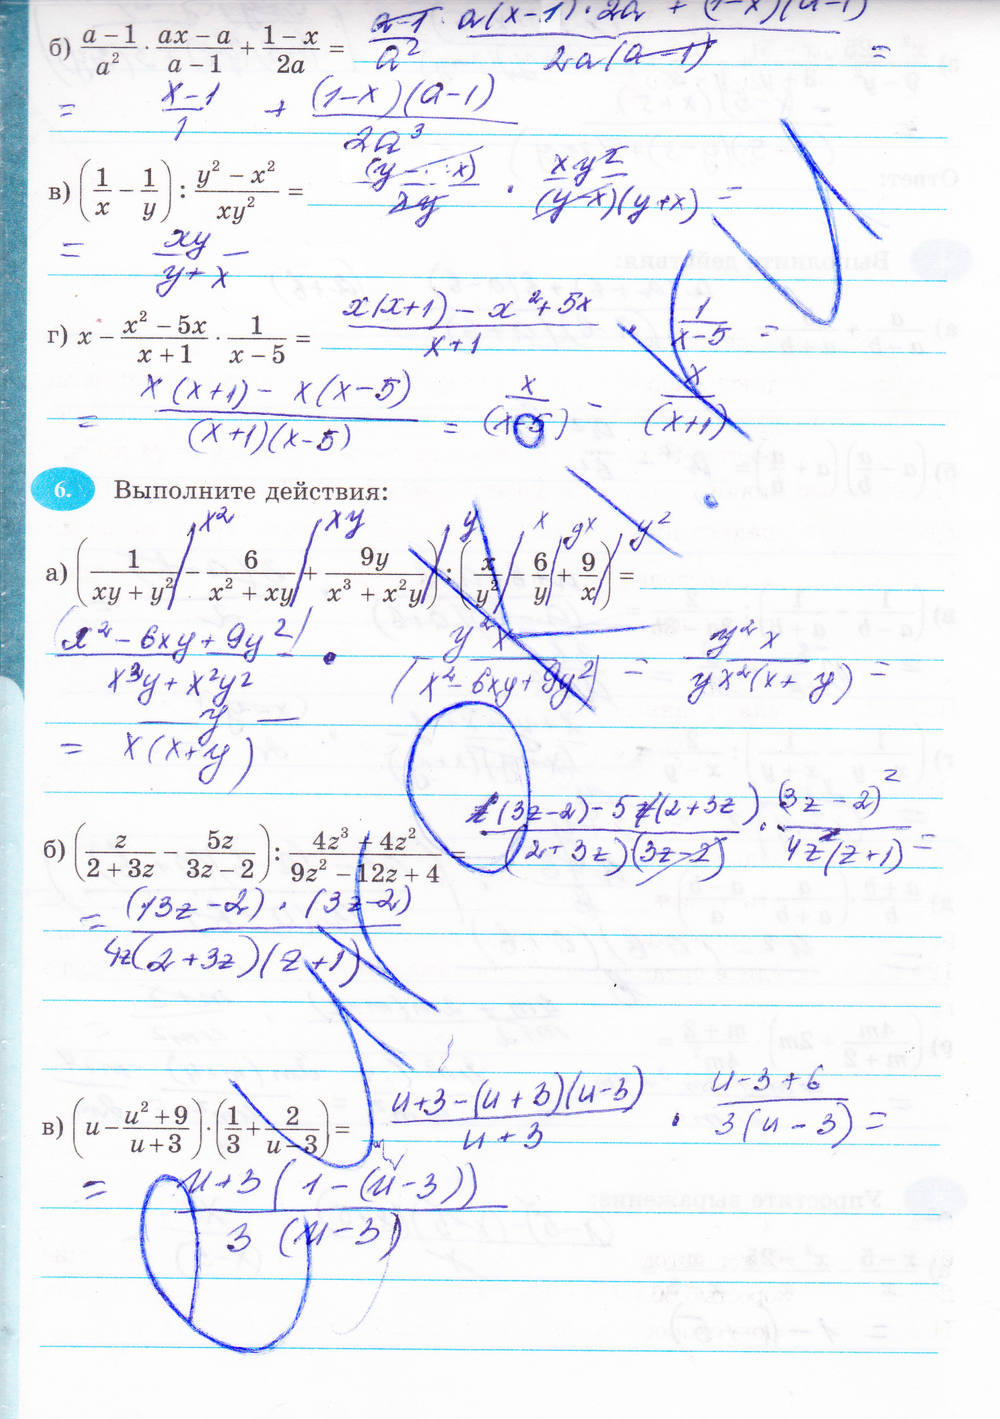 б) (a − 1)/a² · (ax − a)/(a − 1) + (1 − x)/2a = (a−1)/a² · (a(x−1) · 2a + (1−x)(a−1))/(2a(a−1)) =
= (x−1)/1 + ((1−x)(a−1))/2a³
в) (1/x − 1/y) : (y² − x²)/xy² = (y − x)/xy · xy²/((y−x)(y+x)) =
= xy/(y+x)
г) x − (x² − 5x)/(x + 1) · 1/(x − 5) = (x(x+1) − x² + 5x)/(x+1) · 1/(x−5) =
= (x(x+1) − x(x−5))/((x+1)(x−5)) = x/(x−5) − x/(x+1)
6. Выполните действия:
x² xy y x yx y²
а) (1/(xy + y²) − 6/(x² + xy) + 9y/(x³ + x²y)) : (x/y² − 6/y + 9/x) =
(x² − 6xy + 9y²)/(x³y + x²y²) · y²x/(x² − 6xy + 9y²) = y²x/(yx²(x + y)) =
= y/(x(x+y))
б) (z/(2 + 3z) − 5z/(3z − 2)) : (4z³ + 4z²)/(9z² − 12z + 4) = (z(3z−2) − 5z(2+3z))/((2+3z)(3z−2)) · (3z−2)²/(4z²(z+1)) =
= ((13z − 2) · (3z−2))/(4z(2+3z)(z+1))
в) (u − (u² + 9)/(u + 3)) · (1/3 + 2/(u − 3)) = (u+3 − (u+3)(u−3))/(u+3) · (u−3+6)/(3(u−3)) =
= (u+3(1−(u−3)))/(3(u−3))